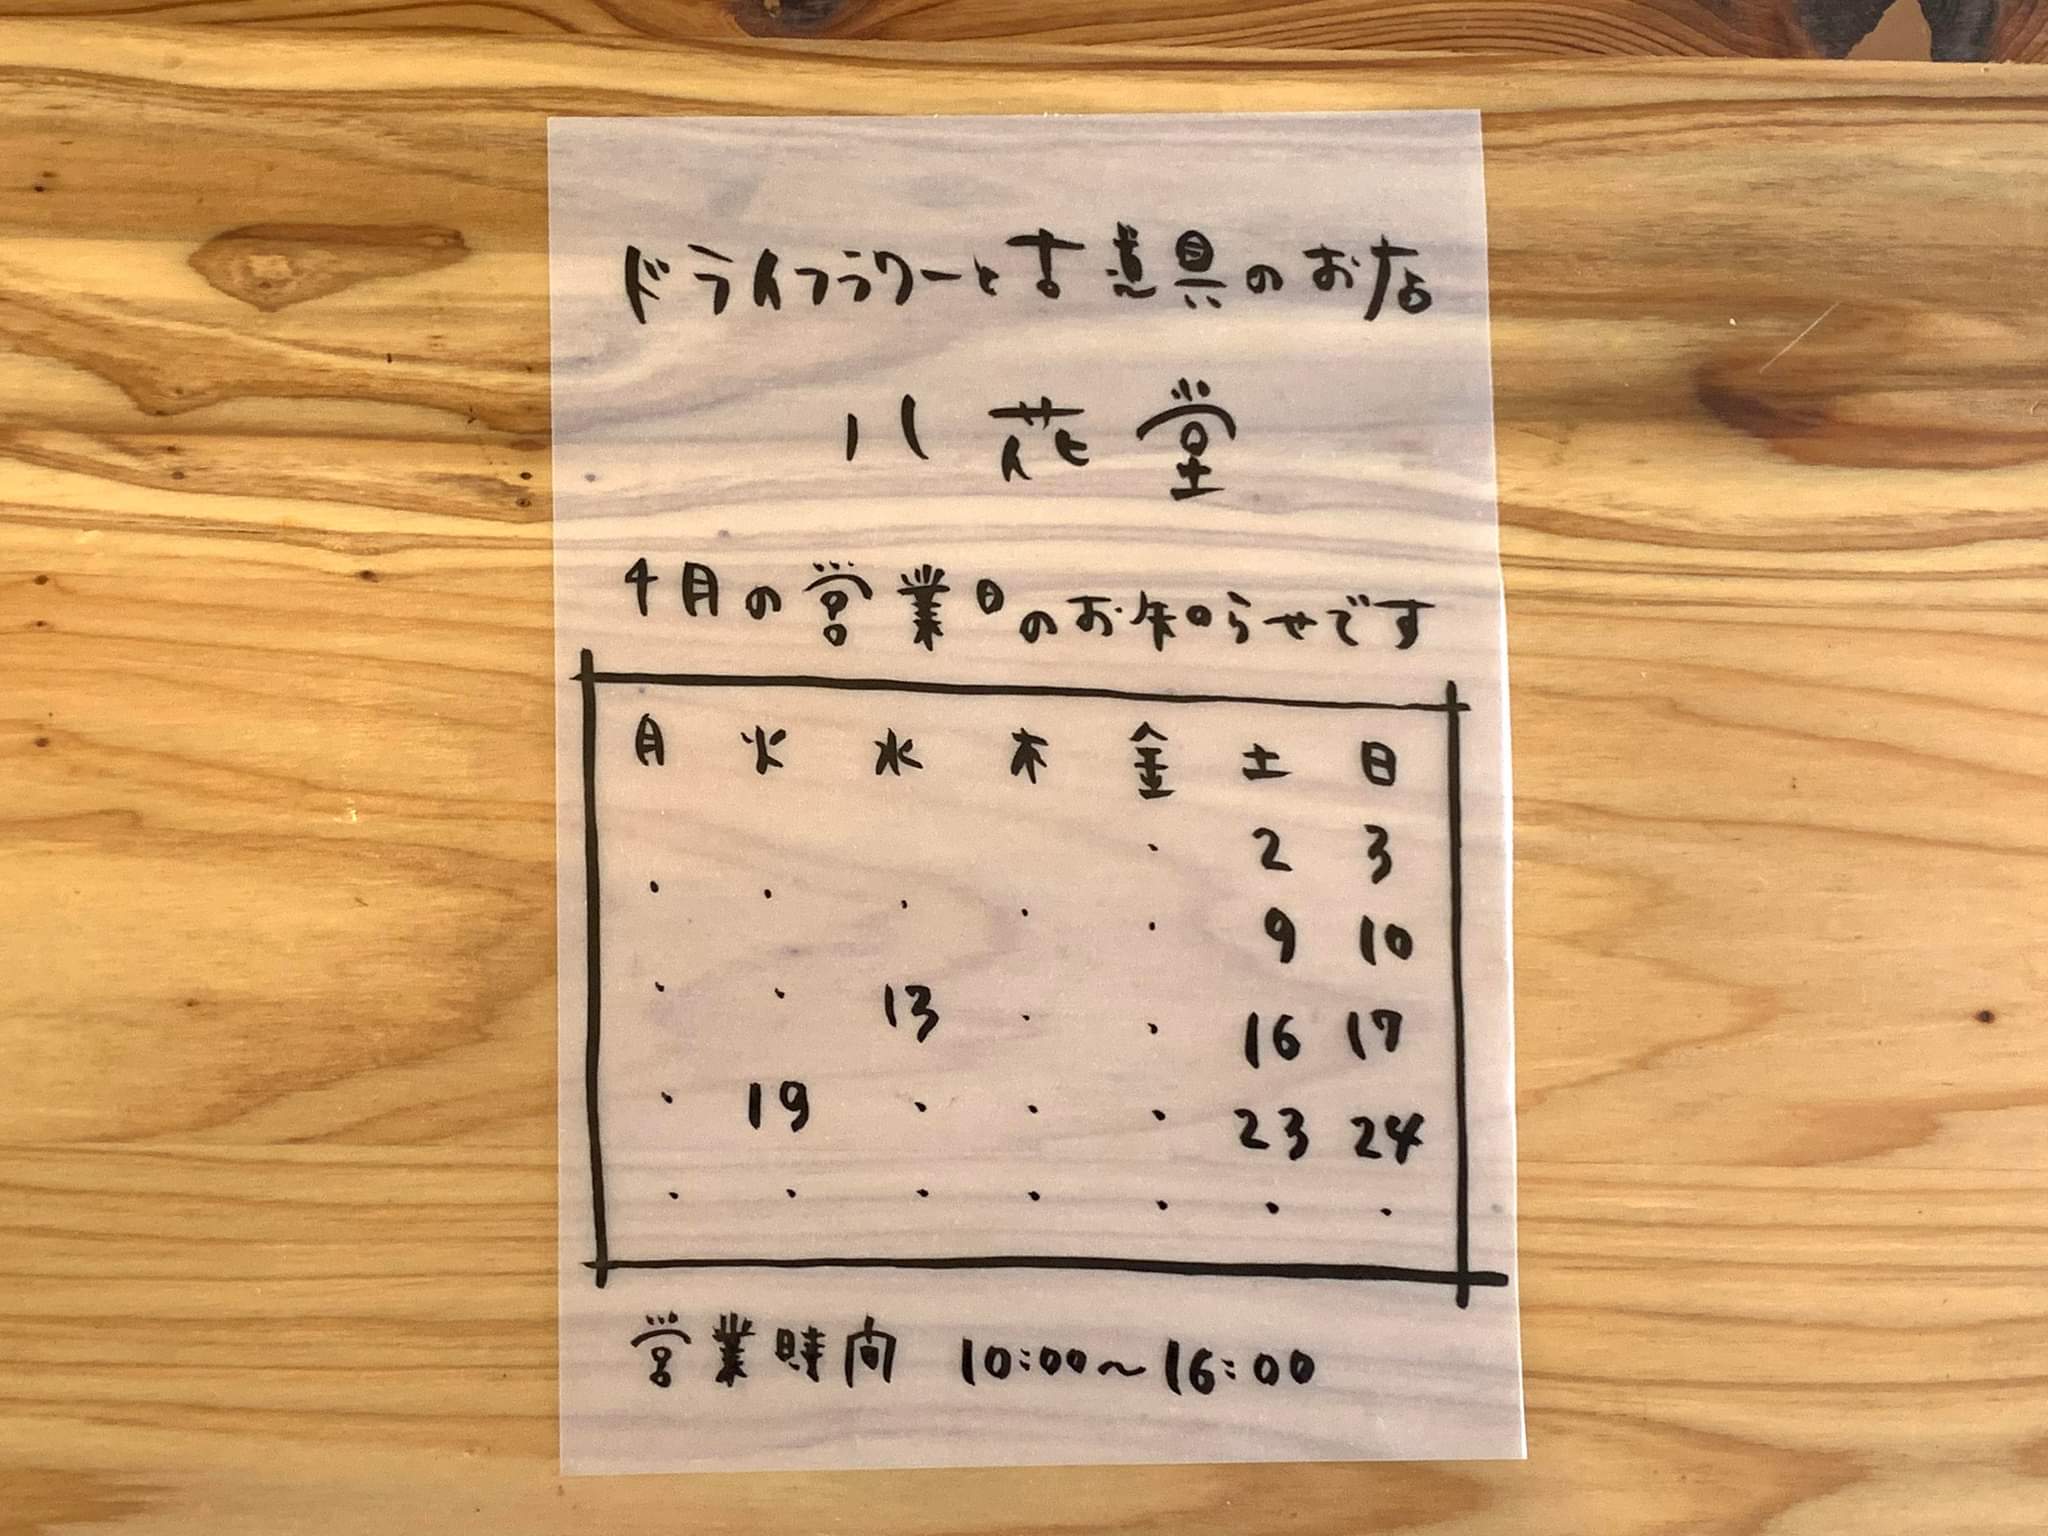 ドライフラワーと古道具のお店
八花堂
4月の営業日のお知らせです
月 火 水 木 金 土 日
・ 2 3
・ ・ ・ ・ ・ 9 10
・ ・ 13 ・ ・ 16 17
・ 19 ・ ・ ・ 23 24
・ ・ ・ ・ ・ ・ ・
営業時間 10:00～16:00